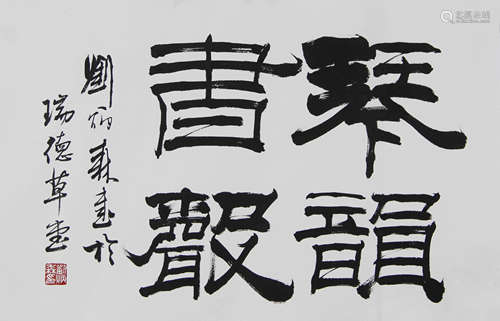 琴韻
書聲
劉炳森書於
瑞德草堂